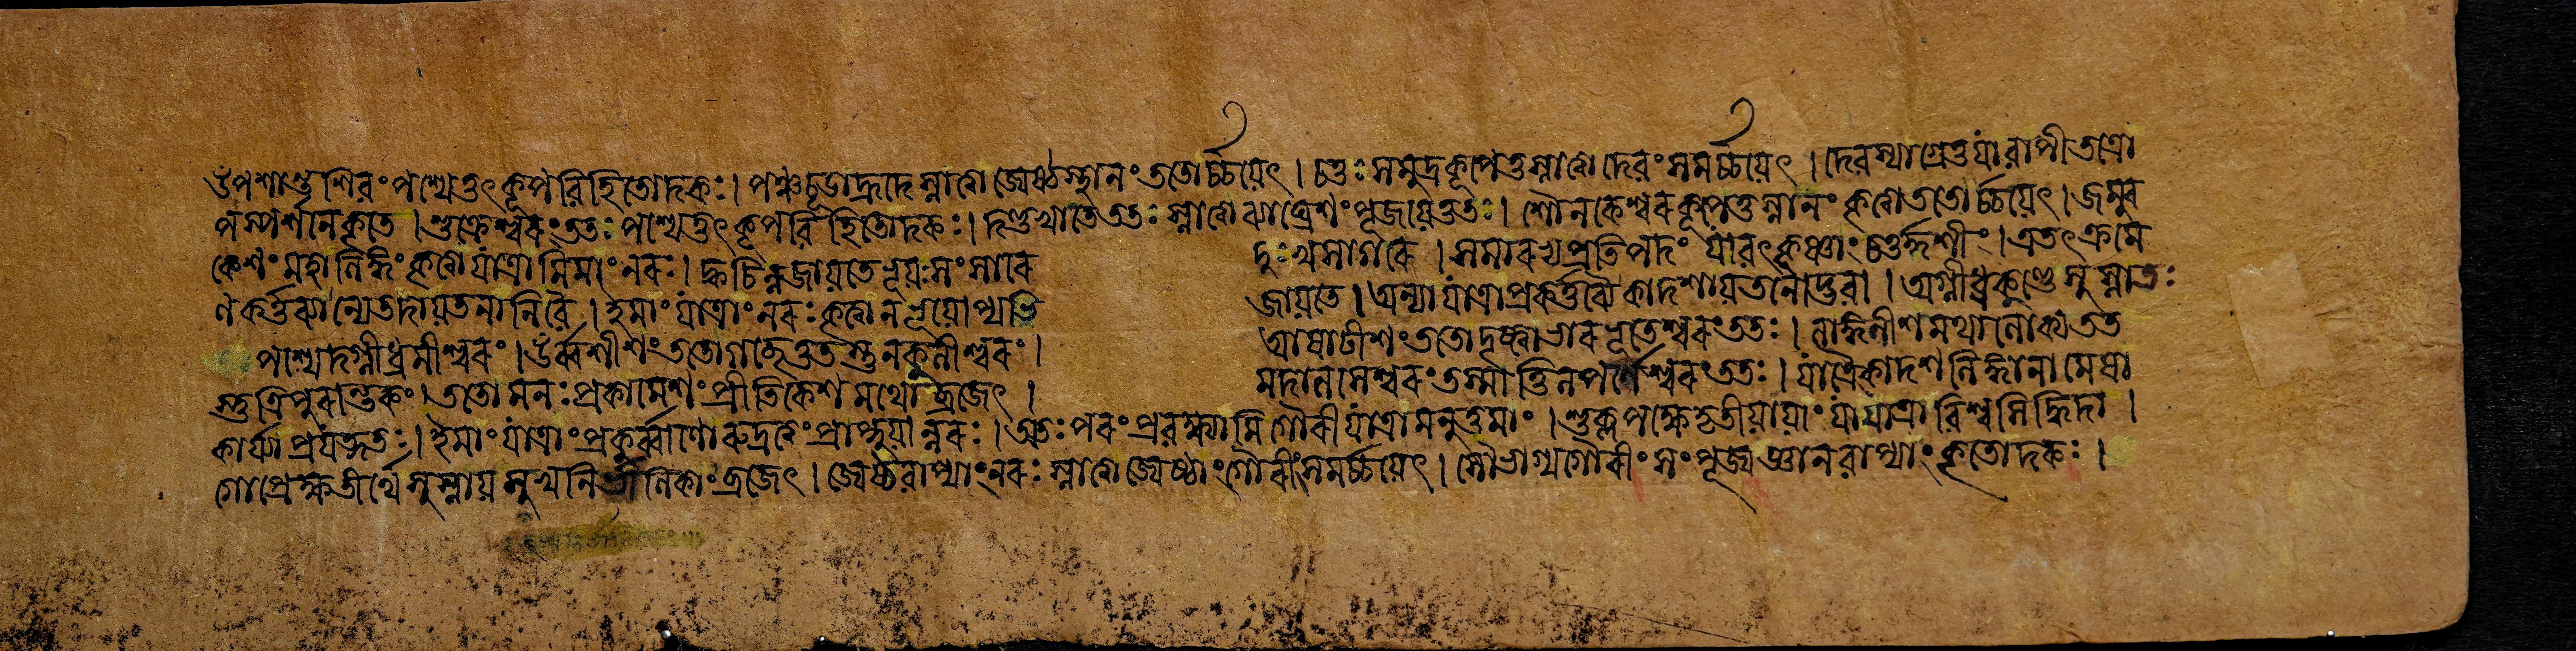 উপশান্তশিৱং পশ্যেত্তৎকূপৱিহিতোদকঃ। পঞ্চচূডাহ্রদে স্নাত্বা জ্যেষ্ঠস্থানং ততোর্চ্চয়েৎ। চতুঃসমুদ্রকূপেতু স্নাত্বা দেৱং সমর্চ্চয়েৎ। দেৱস্যাগ্রেতু যা ৱাপী তত্রো
পস্পর্শনে কৃতে। শুক্রেশ্বরং ততঃ পশ্যেত্তৎকূপৱিহিতোদকঃ। দণ্ডখাতে ততঃ স্নাত্বা ব্যাঘ্রেশং পূজয়েত্ততঃ। শৌনকেশ্বরকূপেতু স্নানং কৃত্বা ততোর্চ্চয়েৎ। জম্বুক
কেশং মহালিঙ্গং কৃত্বা যাত্রামিমাং নরঃ। ক্বচিন্নজায়তে ভূয়ঃ সংসারে দুঃখসাগরে। সমারভ্য প্রতিপদং যাৱৎকৃষ্ণাং চতুর্দ্দশীং। এতৎক্রমে
ণ কর্ত্তব্যান্যেতদায়তনানি ৱৈ। ইমাং যাত্রাং নরঃ কৃত্বা ন ভূয়োপ্যভি জায়তে। অন্যা যাত্রা প্রকর্ত্তব্যৈকাদশায়তনোদ্ভৱা। অগ্নীধ্রকুণ্ডে সুস্নাতঃ
পশ্যেদগ্নীধ্রমীশ্বরং। উর্ব্বশীশং ততোগচ্ছেত্ততস্তু নকুলীশ্বরং। আষাঢীশং ততোদৃষ্ট্বা ভারভূতেশ্বরং ততঃ। লাঙ্গলীশমথালোক্য তত
স্তু ত্রিপুরান্তকং। ততো মনঃপ্রকামেশং প্রীতিকেশমথো ব্রজেৎ। মদালসেশ্বরং তস্মাত্তিলপর্ণেশ্বরং ততঃ। যাত্রৈকাদশলিঙ্গানামেষা
কার্য্যা প্রযত্নতঃ। ইমাং যাত্রাং প্রকুর্ব্বাণো রুদ্রত্বং প্রাপ্নুয়ান্নরঃ। অতঃ পরং প্রৱক্ষ্যামি গৌরীযাত্রামনুত্তমাং। শুক্লপক্ষেতৃতীয়ায়াং যা যাত্রা ৱিশ্বসিদ্ধিদা।
গোপ্রেক্ষতীর্থে সুস্নায় মুখনির্মালিকাং ব্রজেৎ। জ্যেষ্ঠৱাপ্যাং নরঃ স্নাত্বা জ্যেষ্ঠাং গৌরীং সমর্চ্চয়েৎ। সৌভাগ্যগৌরীং সংপূজ্য জ্ঞানৱাপ্যাং কৃতোদকঃ।